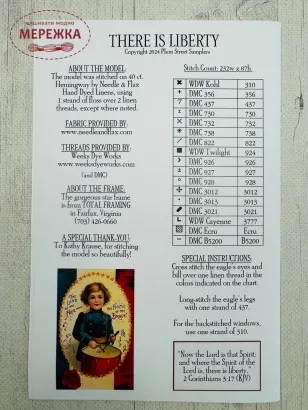 ВИШИВАТИ МОДНО
МЕРЕЖКА
THERE IS LIBERTY
Copyright 2024 Plum Street Samplers
ABOUT THE MODEL:
The model was stitched on 40 ct.
Hemingway by Needle & Flax
Hand Dyed Linens, using
1 strand of floss over 2 linen
threads, except where noted.
FABRIC PROVIDED BY:
www.needleandflax.com
THREADS PROVIDED BY:
Weeks Dye Works
www.weeksdyeworks.com
(and DMC)
ABOUT THE FRAME:
The gorgeous star frame
is from TOTAL FRAMING
in Fairfax, Virginia
(703) 426-0660
A SPECIAL THANK-YOU:
To Kathy Krause, for stitching
the model so beautifully!
Stitch Count: 232w x 87h
WDW Kohl 310
DMC 356 356
DMC 437 437
DMC 730 730
DMC 732 732
DMC 738 738
DMC 822 822
WDW Twilight 924
DMC 926 926
DMC 927 927
DMC 928 928
DMC 3012 3012
DMC 3013 3013
DMC 3021 3021
WDW Cayenne 3777
DMC Ecru Ecru
DMC B5200 B5200
SPECIAL INSTRUCTIONS:
Cross stitch the eagle's eyes and
fill over one linen thread in the
colors indicated on the chart.
Long-stitch the eagle's legs
with one strand of 437.
For the backstitched windows,
use one strand of 310.
"Now the Lord is that Spirit:
and where the Spirit of the
Lord is, there is liberty."
2 Corinthians 3:17 (KJV)